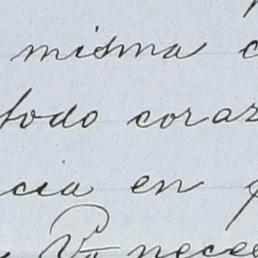 misma
todo coraz
cia en
Va nece